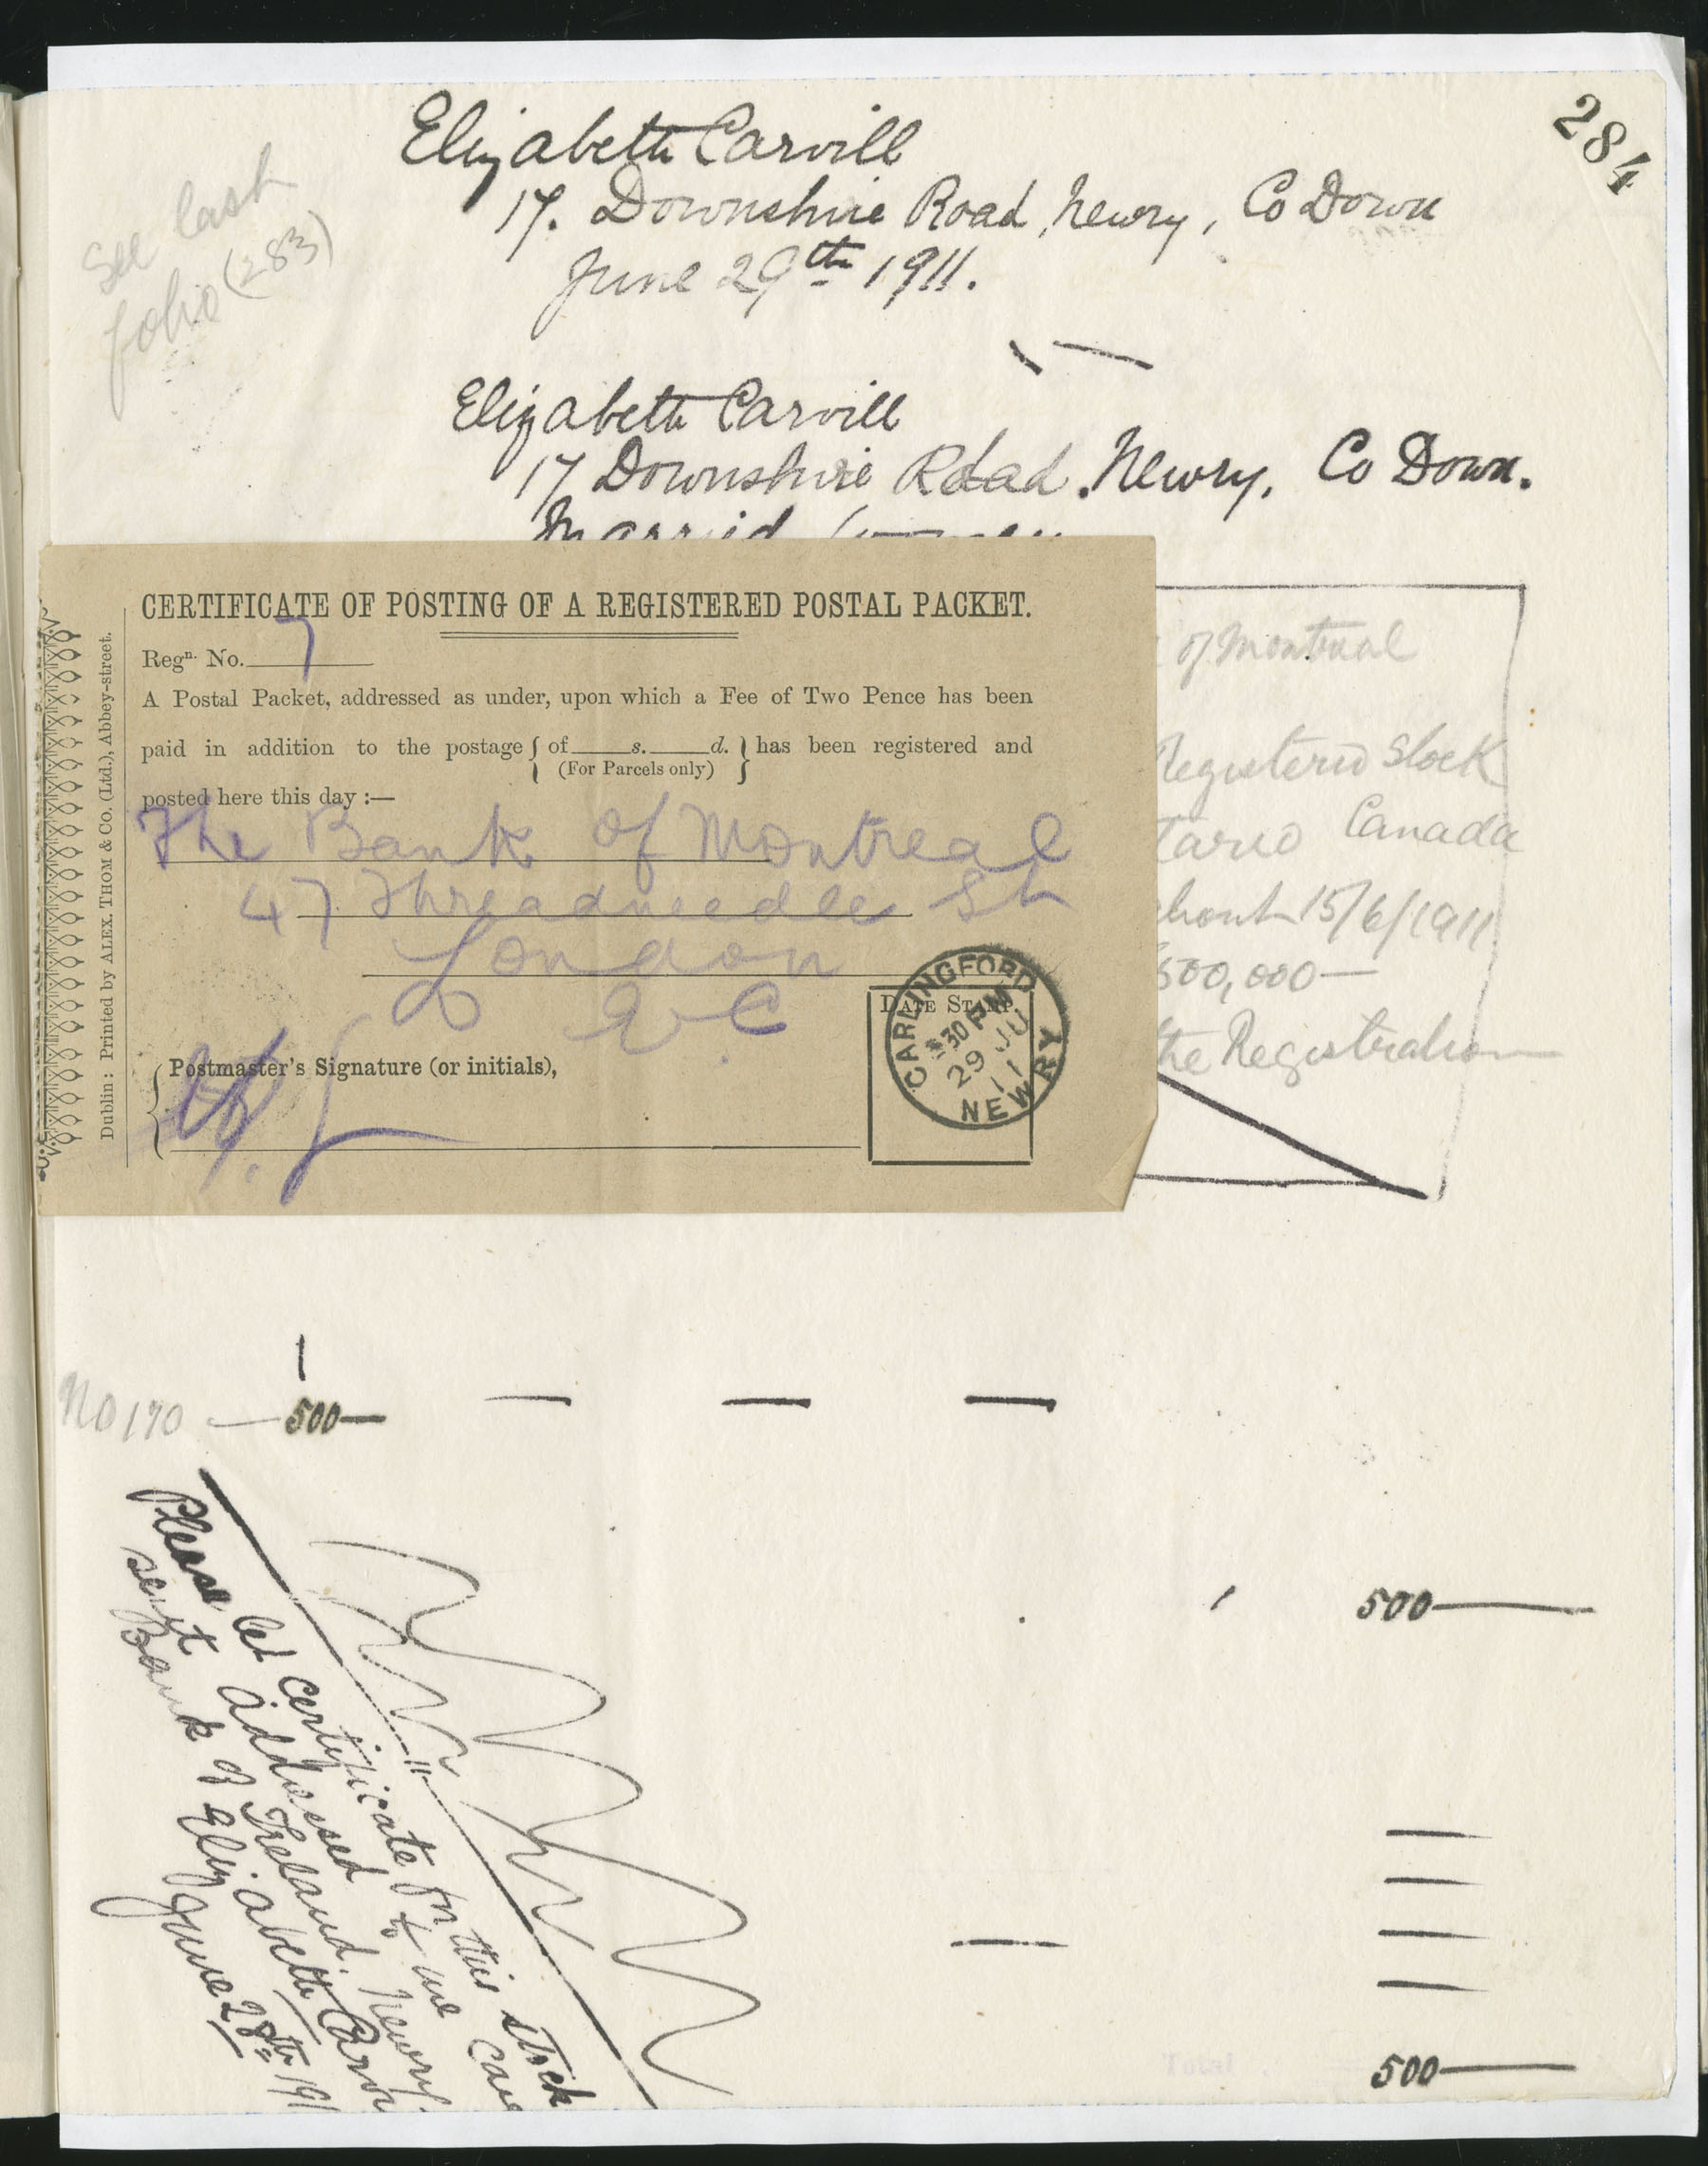 284
Elizabeth Carvill
17. Downshire Road, Newry, Co Down
June 29th 1911.
See last
folio (283)
Elizabeth Carvill
17 Downshire Road. Newry, Co Down.
Married Woman
CERTIFICATE OF POSTING OF A REGISTERED POSTAL PACKET.
Regn. No. 7
A Postal Packet, addressed as under, upon which a Fee of Two Pence has been
paid in addition to the postage { of s. d. } has been registered and
(For Parcels only)
posted here this day :—
The Bank of Montreal
47 Threadneedle St
London
E.C
Postmaster's Signature (or initials),
DATE STAMP.
CARLINGFORD
30 PM
29 JU
11
NEWRY
Dublin: Printed by ALEX. THOM & Co. (Ltd.), Abbey-street.
of Montreal
Registered Stock
tario Canada
15/6/1911
500,000—
the Registration
No 170 — 500—
500—
Please let certificate for this stock
sent addressed to me care
Bank of Ireland. Newry.
Elizabeth Carvi
June 28th 191
Total
500—